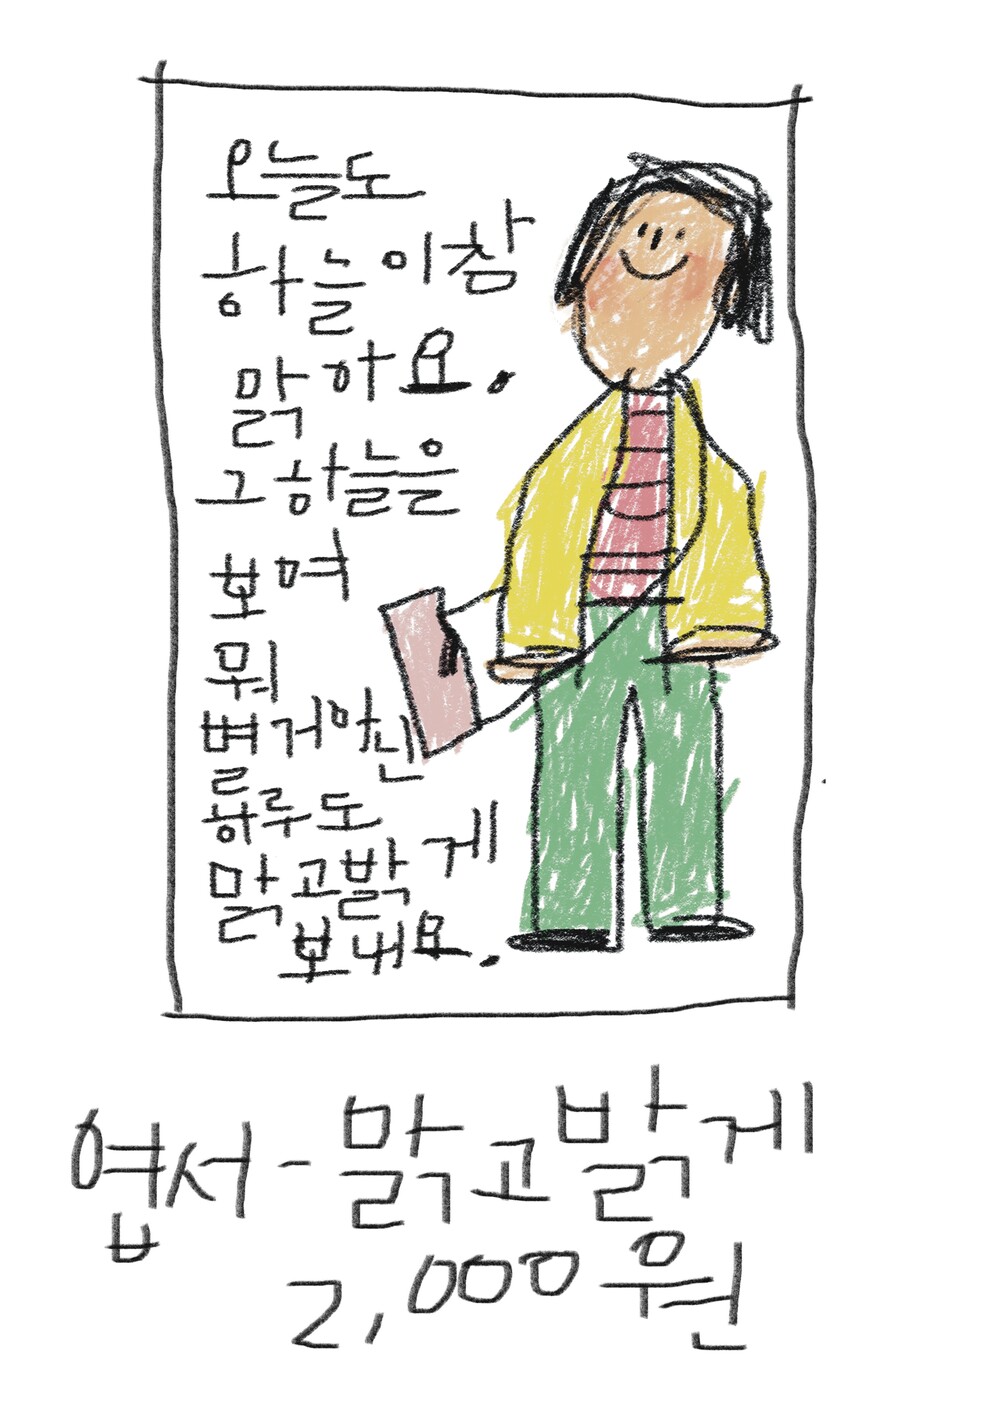 오늘도
하늘이참
맑아요.
그하늘을
보며
뭐
별거아닌
하루도
맑고밝게
보내요.
엽서-맑고밝게
2,000원